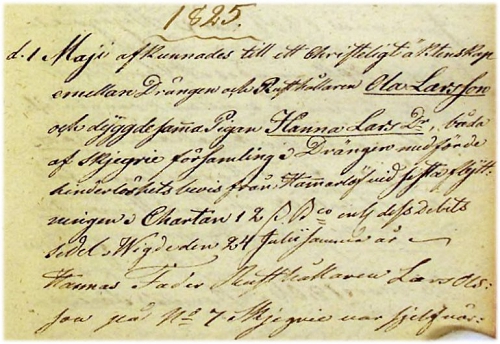 1825.
d. 1 Maji afkunnades till ett Christeligt äktenskap
emellan Drängen och Rusthållaren Ola Larsson
och dygdesamma Pigan Hanna Lars Dr, båda
af Skjegrie församling; Drängen medförde
hinderlöshets bevis från Hamarlöf vid sista flytt-
ningen; Chartan 12 ß Bco enl dess debits
sedel. Wigde den 24 Julii samma år
Hannas Fader Rusthållaren Lars Ols-
son på No 7 Skjegrie var sjelf när-